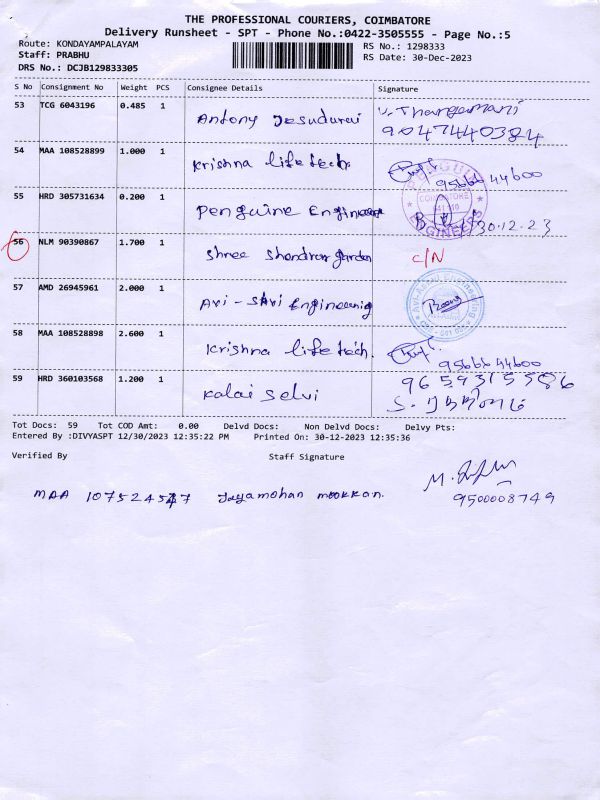 THE PROFESSIONAL COURIERS, COIMBATORE
Delivery Runsheet - SPT - Phone No.:0422-3505555 - Page No.:5
Route: KONDAYAMPALAYAM
RS No.: 1298333
Staff: PRABHU
RS Date: 30-Dec-2023
DRS No.: DCJB129833305
S No Consignment No Weight PCS Consignee Details Signature
53 TCG 6043196 0.485 1 Antony Jesudurai V. Thangamani
9047440384
54 MAA 108528899 1.000 1 Krishna life tech.
95666 44600
55 HRD 305731634 0.200 1 Penguine Engineer
PENGUIN ENGINEERS COIMBATORE
30.12.23
56 NLM 90390867 1.700 1 Shree Shandrar garden C/N
57 AMD 26945961 2.000 1 Avi-Shvi Engineering
58 MAA 108528898 2.600 1 Krishna life tech.
95666 44600
59 HRD 360103568 1.200 1 Kalai Selvi 9659315586
Tot Docs: 59 Tot COD Amt: 0.00 Delvd Docs: Non Delvd Docs: Delvy Pts:
Entered By :DIVYASPT 12/30/2023 12:35:22 PM Printed On: 30-12-2023 12:35:36
Verified By Staff Signature
MAA Jayamohan mookkan.
9500008749